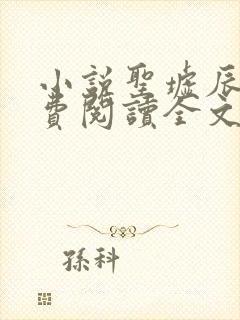 小說聖墟辰
費閱讀全文
孫科